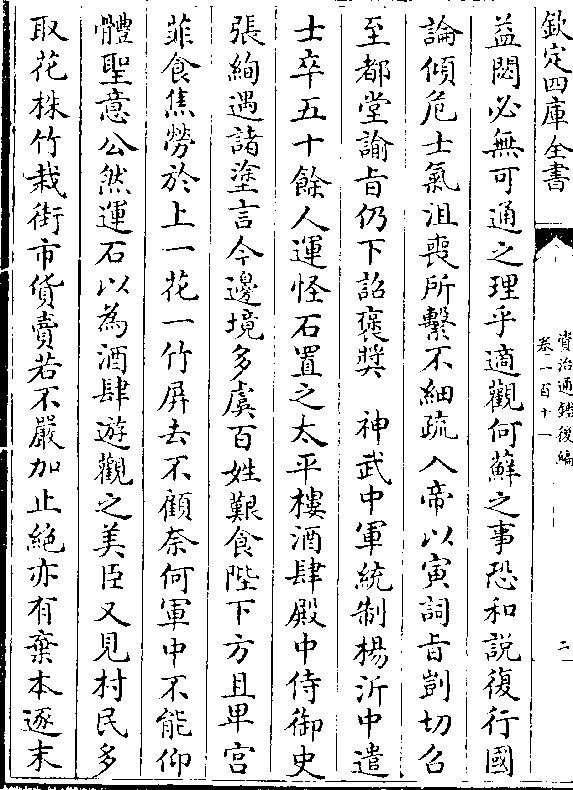 欽定四庫全書
資治通鑑後編
卷一百十一
二
益閡必無可通之理乎適觀何蘚之事恐和說復行國
論傾危士氣沮喪所繫不細疏入帝以寅詞旨剴切召
至都堂諭旨仍下詔褒奬　神武中軍統制楊沂中遣
士卒五十餘人運怪石置之太平樓酒肆殿中侍御史
張絢遇諸塗言今邊境多虞百姓艱食陛下方且卑宫
菲食焦勞於上一花一竹屏去不顧奈何軍中不能仰
體聖意公然運石以為酒肆遊觀之美臣又見村民多
取花株竹栽街市貨賣若不嚴加止絶亦有棄本逐末